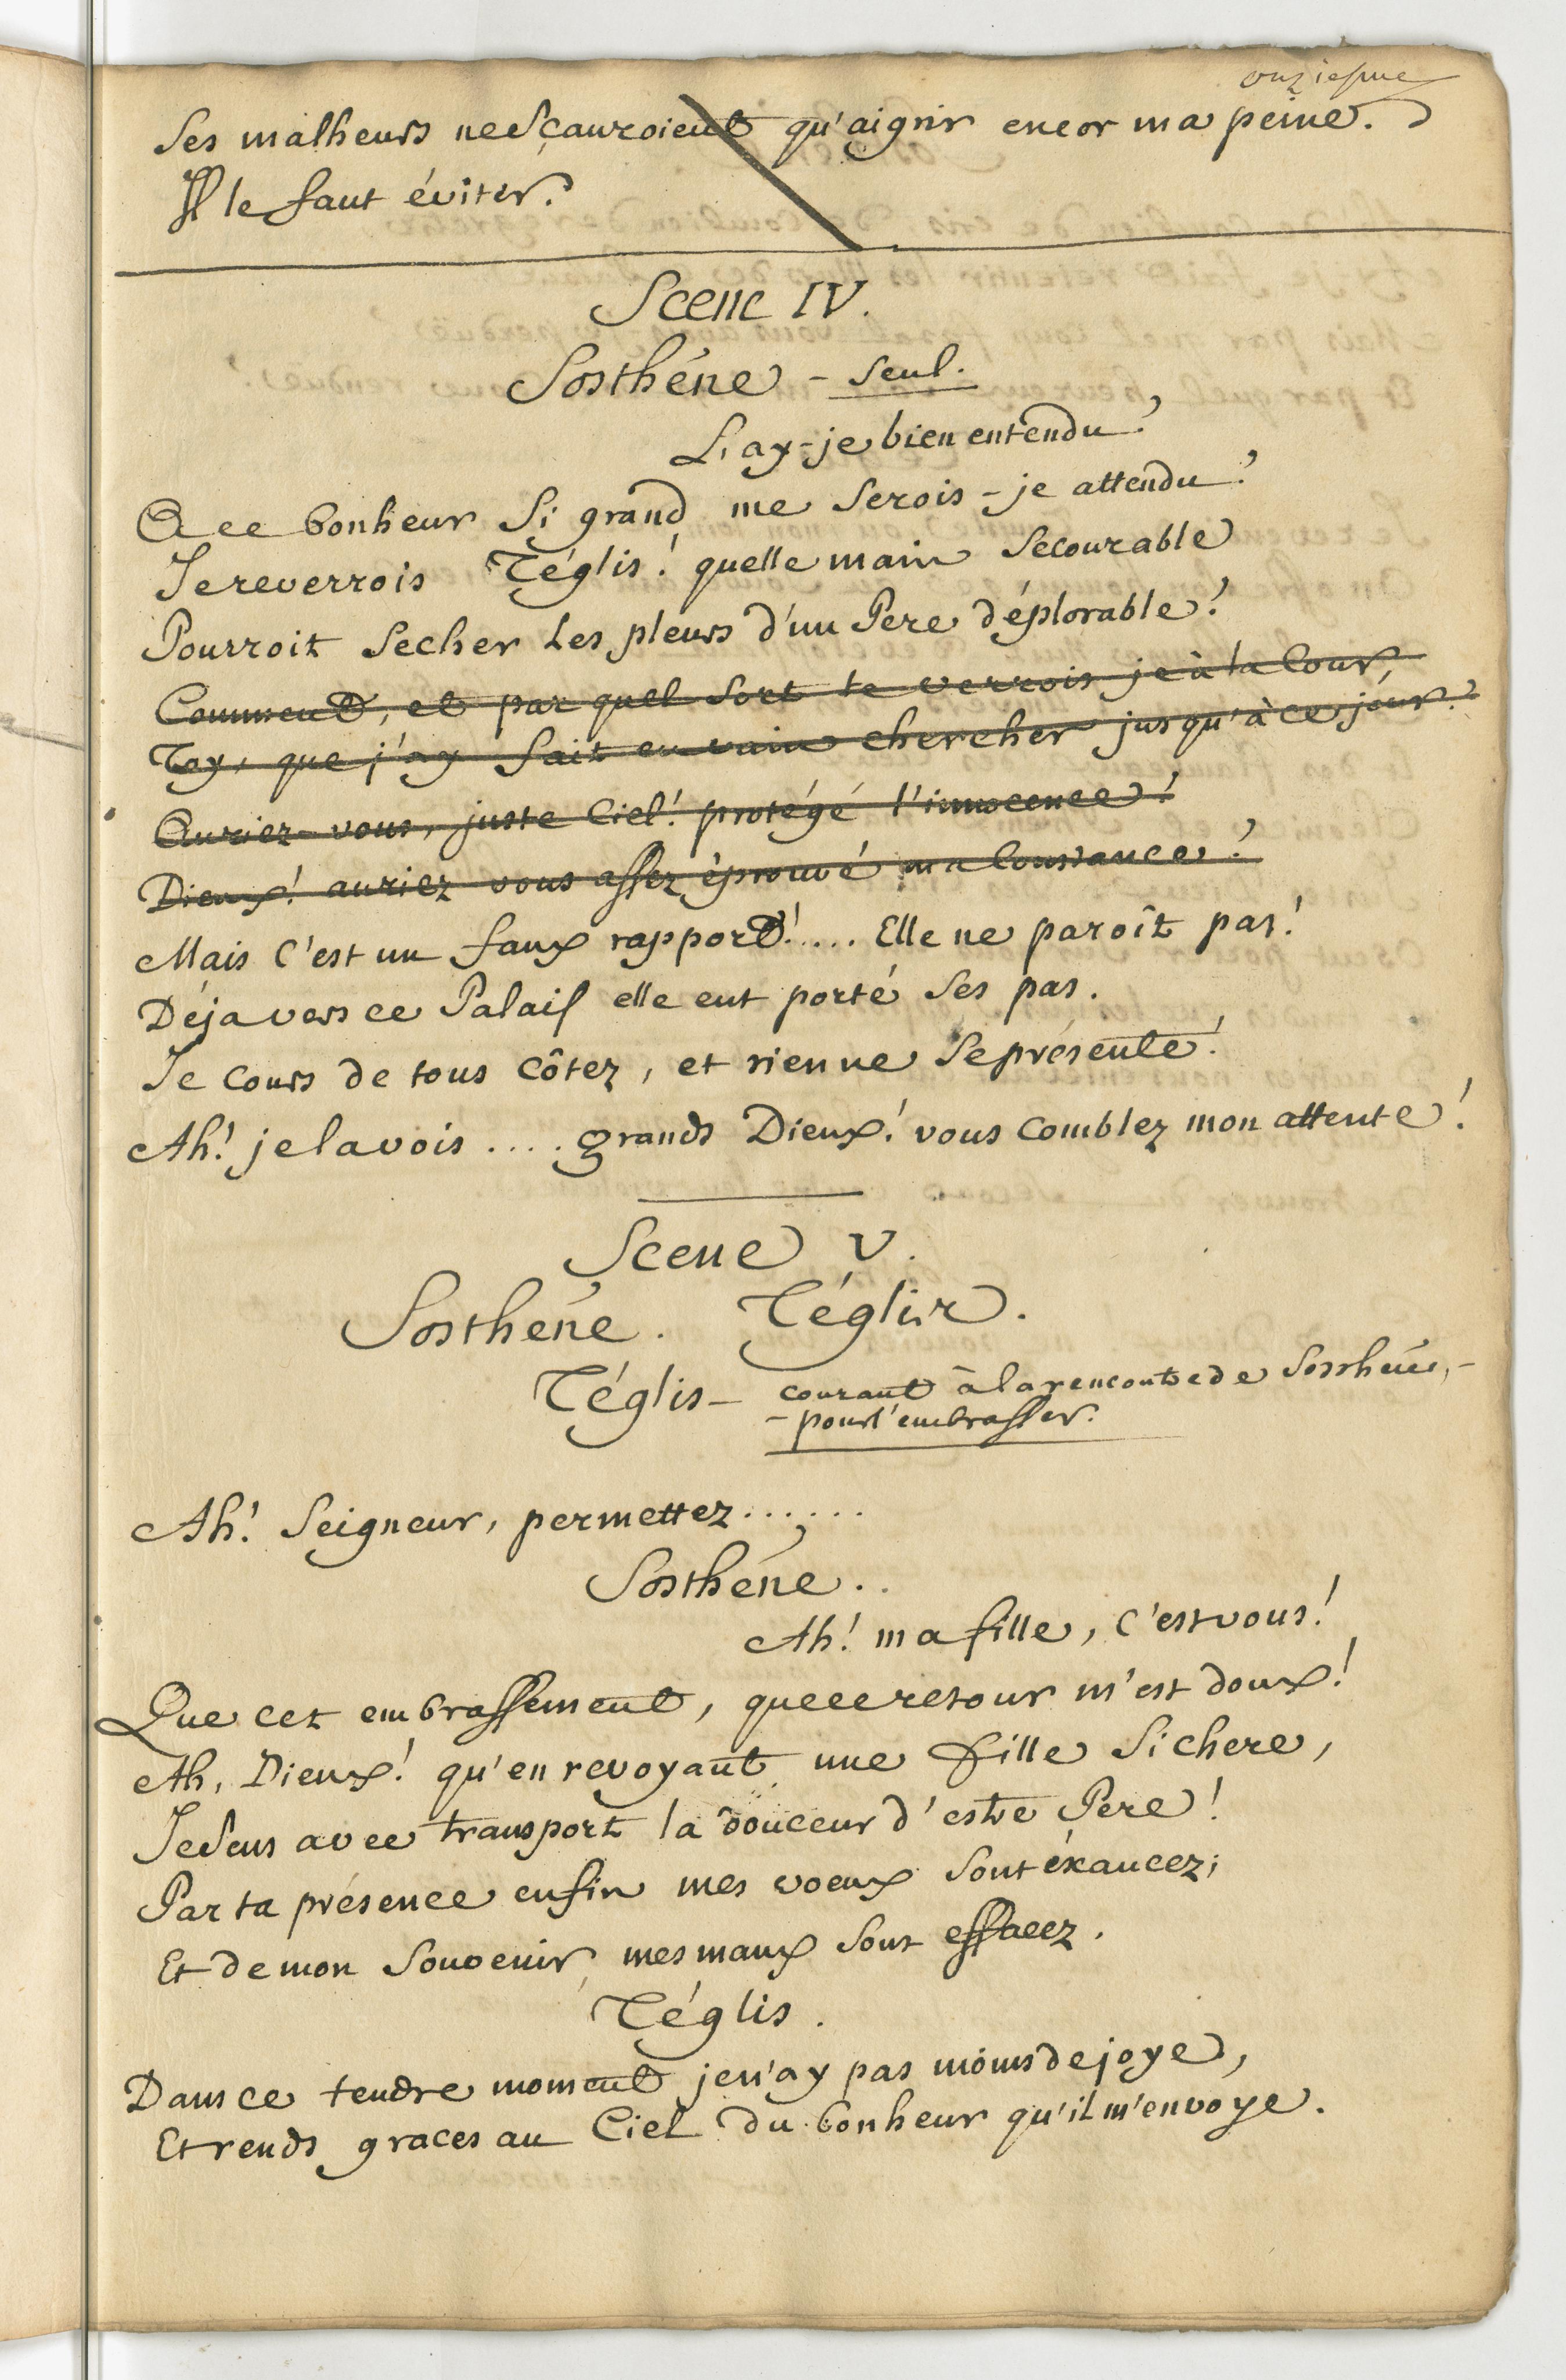 onziesme
Ses malheurs ne Sçauroient qu'aigrir encor ma peine.
Il le faut éviter.
Scene IV.
Sosthéne - Seul.
L'ay-je bien entendu?
A ce bonheur Si grand me Serois-je attendu?
Je reverrois Téglis! quelle main Secourable
Pourroit Secher Les pleurs d'un Pere déplorable?
Comment, et par quel Sort te verrois je à la Cour,
Toy, que j'ay fait en vain chercher jusqu'à ce jour?
Auriez-vous, juste Ciel! protégé l'innocence?
Dieux! auriez vous assez éprouvé ma Constance?
Mais c'est un faux rapport!.... Elle ne paroît pas!
Déja vers ce Palais elle eut porté Ses pas.
Je Cours de tous Côtez, et rien ne Se présente!
Ah! je la vois .... grands Dieux! vous Comblez mon attente!
Scene V.
Sosthéne. Téglis.
Téglis - courant à la rencontre de Sosthéne, -
- pour l'embrasser.
Ah! Seigneur, permettez......
Sosthéne..
Ah! ma fille, c'est vous!
Que cet embrassement, que ce retour m'est doux!
Ah, Dieux! qu'en revoyant une fille Si chere,
Je Sens avec transport la douceur d'estre Pere!
Par ta présence enfin mes voeux Sont éxaucez;
Et de mon Souvenir, mes maux Sont effacez.
Téglis.
Dans ce tendre moment je n'ay pas moins de joye,
Et rends graces au Ciel du bonheur qu'il m'envoye.